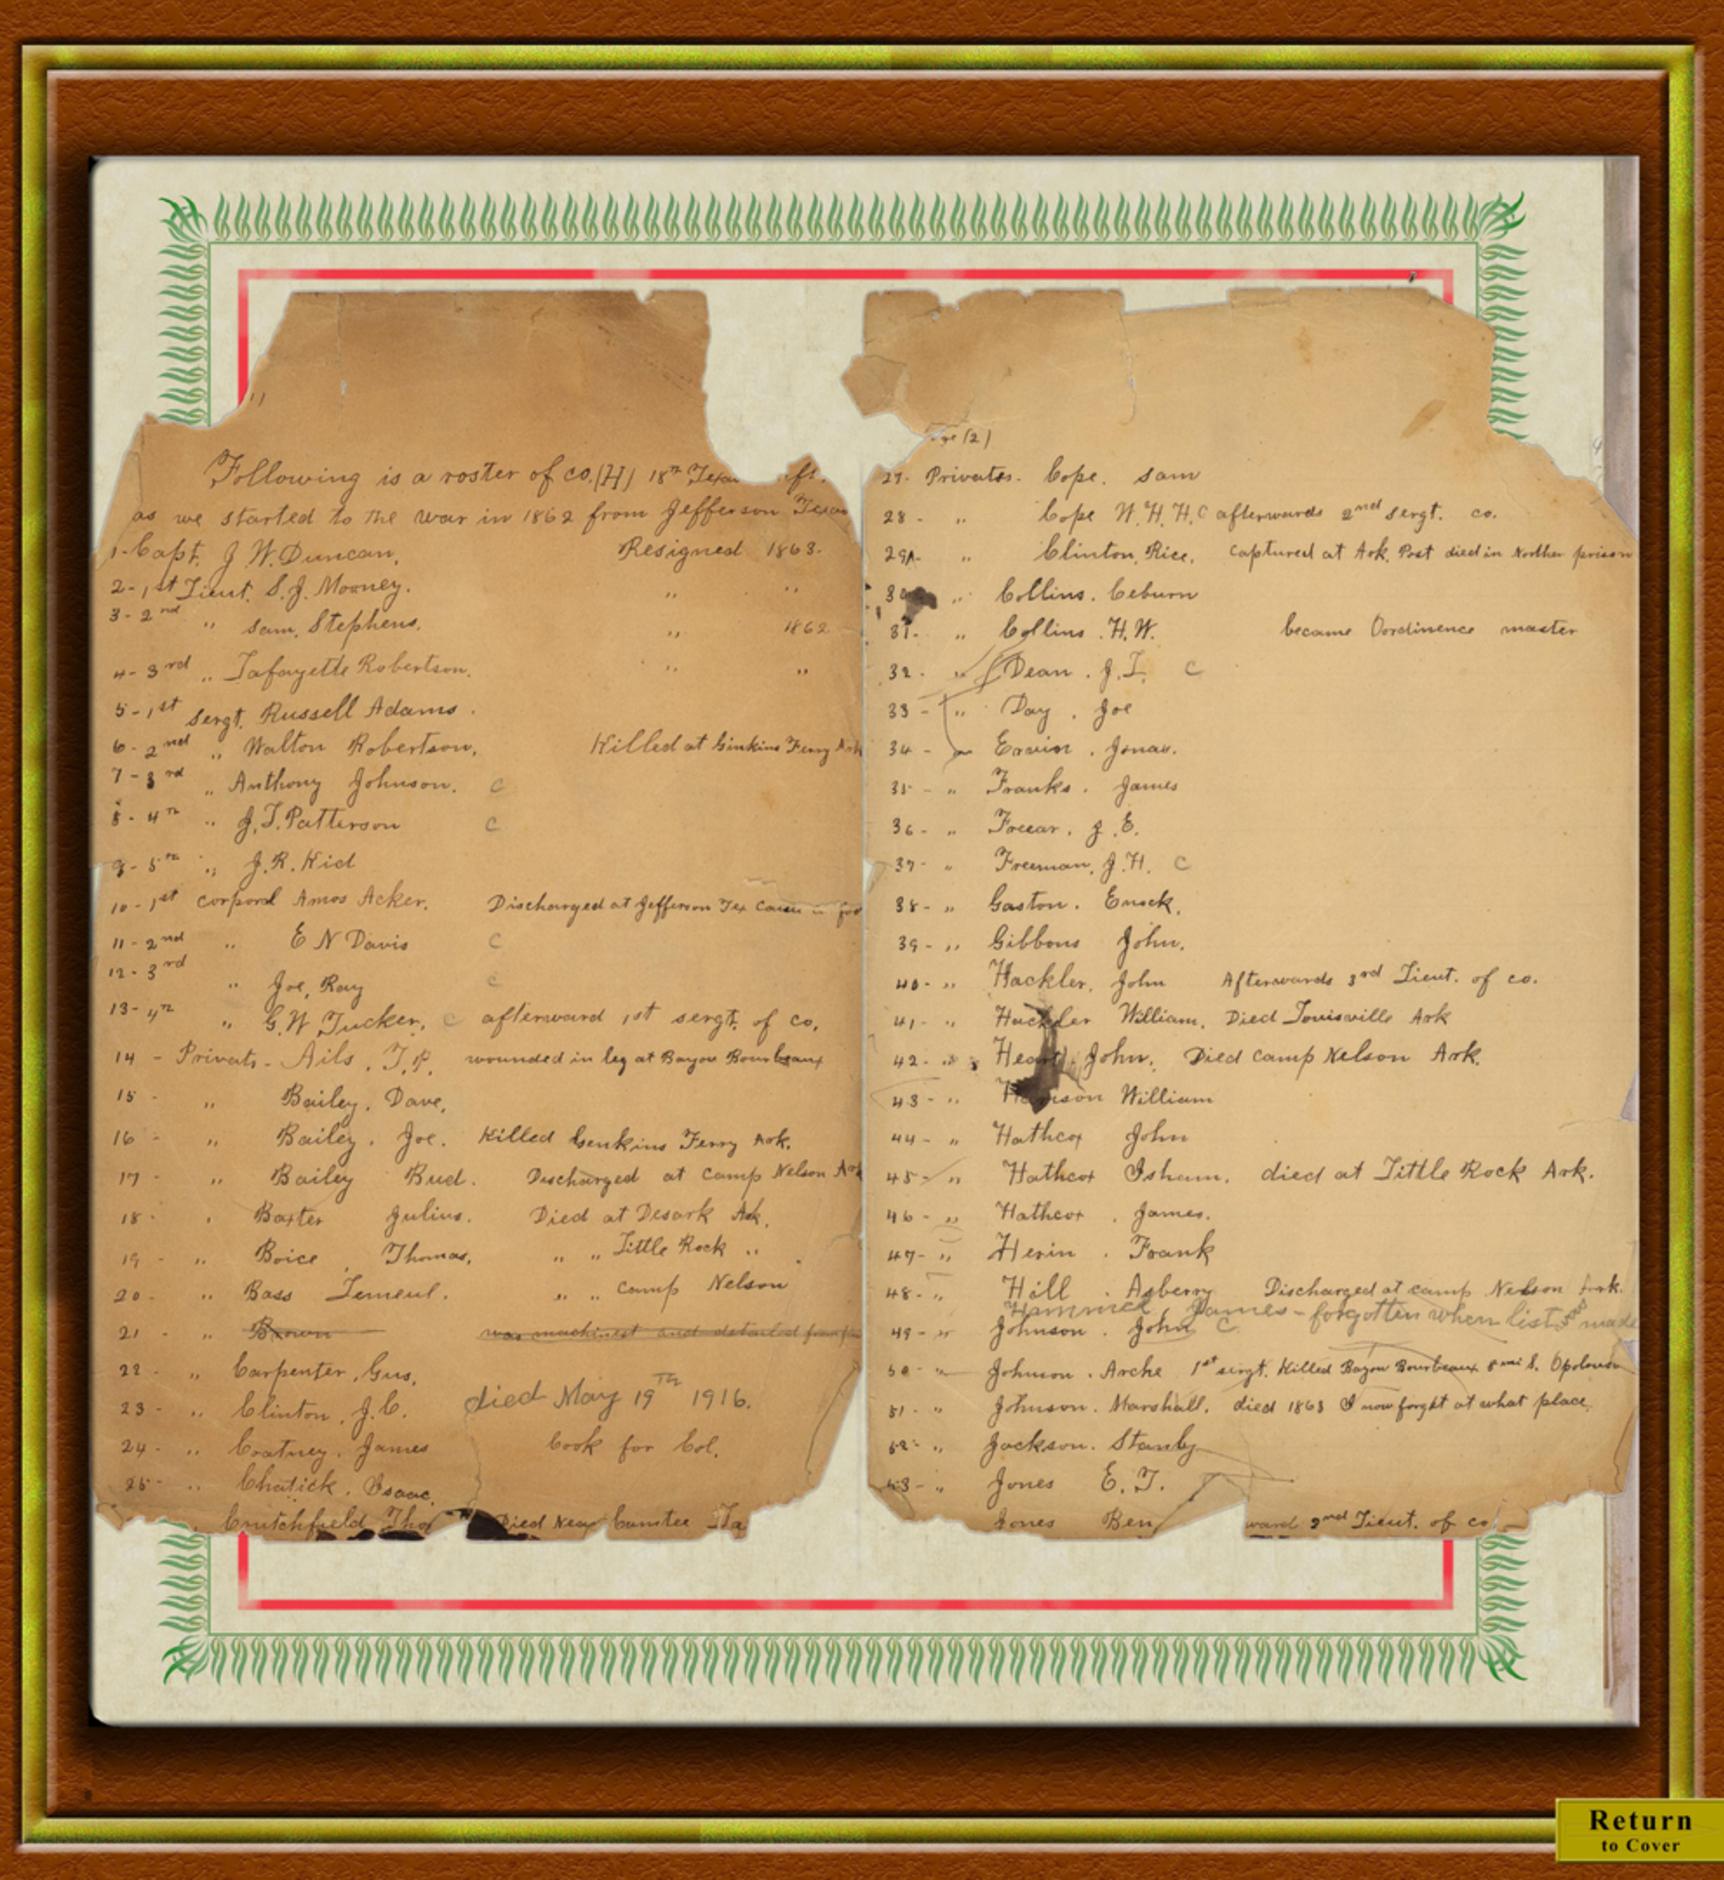 Following is a roster of co. (H) 18th Texa
as we started to the war in 1862 from Jefferson Texas
1- Capt. J W. Duncan, Resigned 1863-
2- 1st Lieut. S. J. Mooney. " "
3- 2nd " Sam. Stephens. " 1862
4- 3rd " Lafayette Robertson. " "
5- 1st Sergt. Russell Adams.
6- 2nd " Walton Robertson, Killed at Ginkins Ferry Ark
7- 3rd " Anthony Johnson. C
8- 4th " J. T. Patterson C
9- 5th " J. R. Kid
10- 1st corporal Amos Acker. Discharged at Jefferson Tex
11- 2nd " E N Davis C
12- 3rd " Joe, Ray C
13- 4th " G. W Tucker, C afterward 1st sergt. of co,
14 - Privats - Ails, T. P. wounded in leg at Bayou Bourbeaux
15 - " Bailey, Dave,
16 - " Bailey, Joe. Killed Genkins Ferry Ark.
17 - " Bailey Bud. Discharged at camp Nelson Ark
18 - " Baxter Julius. Died at Desark Ark,
19 - " Boice, Thomas, " " Little Rock "
20 - " Bass Lemeul. " " camp Nelson
21 - " Brown was machinest and detailed from
22 - " Carpenter, Gus,
23 - " Clinton, J. C. died May 19th 1916.
24 - " Coatney, James Cook for Col.
25 - " Chatick, Isaac,
Crutchfield Tho Died Near
(2)
27- Privates. Cope. Sam
28 - " Cope W. H. H. C afterwards 2nd sergt. co.
29 - " Clinton, Rice, captured at Ark. Post died in Northern prison
30 " Collins. Ceburn
31- " Collins. H. W. became Oordinence master
32- " Dean. J. T. C
33 - " Day, Joe
34 - " Ervin. Jonas.
35 - " Franks. James
36 - " J. E.
37- " Freeman, J. H. C
38 - " Gaston. Enock.
39 - " Gibbons John.
40 - " Hackler. John Afterwards 3rd Lieut. of co.
41 - " Hackler William. Died Louisville Ark
42 - " John. Died camp Nelson Ark.
43 - " William
44 - " Hathcox John
45 - " Hathcox Isham. died at Little Rock Ark.
46 - " Hathcox, James.
47- " Herin. Frank
48- " Hill. Asberry Discharged at camp Nelson Ark.
James - forgotten when list was made
49 - " Johnson. John C
50 - " Johnson. Arche 1st sergt. Killed Bayou Bourbeaux 8 mi S. Opolousa
51 - " Johnson. Marshall. died 1863 I now forget at what place.
52 - " Jackson. Stanly
53 - " Jones E. T.
Jones Ben ward 2nd Lieut. of co
Return
to Cover